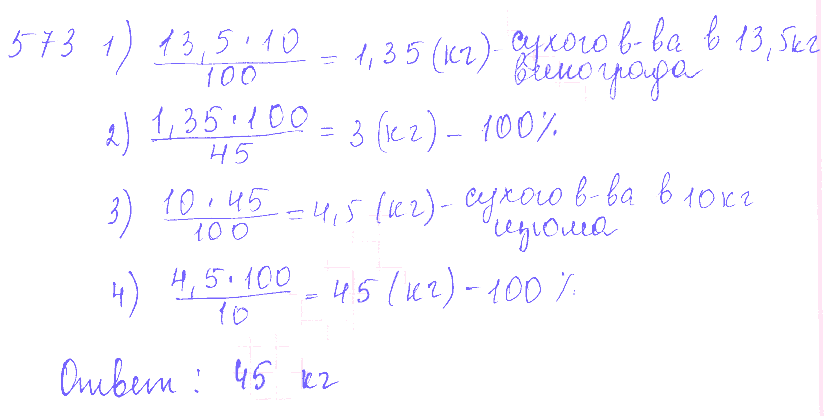 573 1) 13,5·10/100 = 1,35 (кг) - сухого в-ва в 13,5кг
винограда
2) 1,35·100/45 = 3 (кг) - 100%
3) 10·45/100 = 4,5 (кг) - сухого в-ва в 10кг
изюма
4) 4,5·100/10 = 45 (кг) - 100%
Ответ: 45 кг